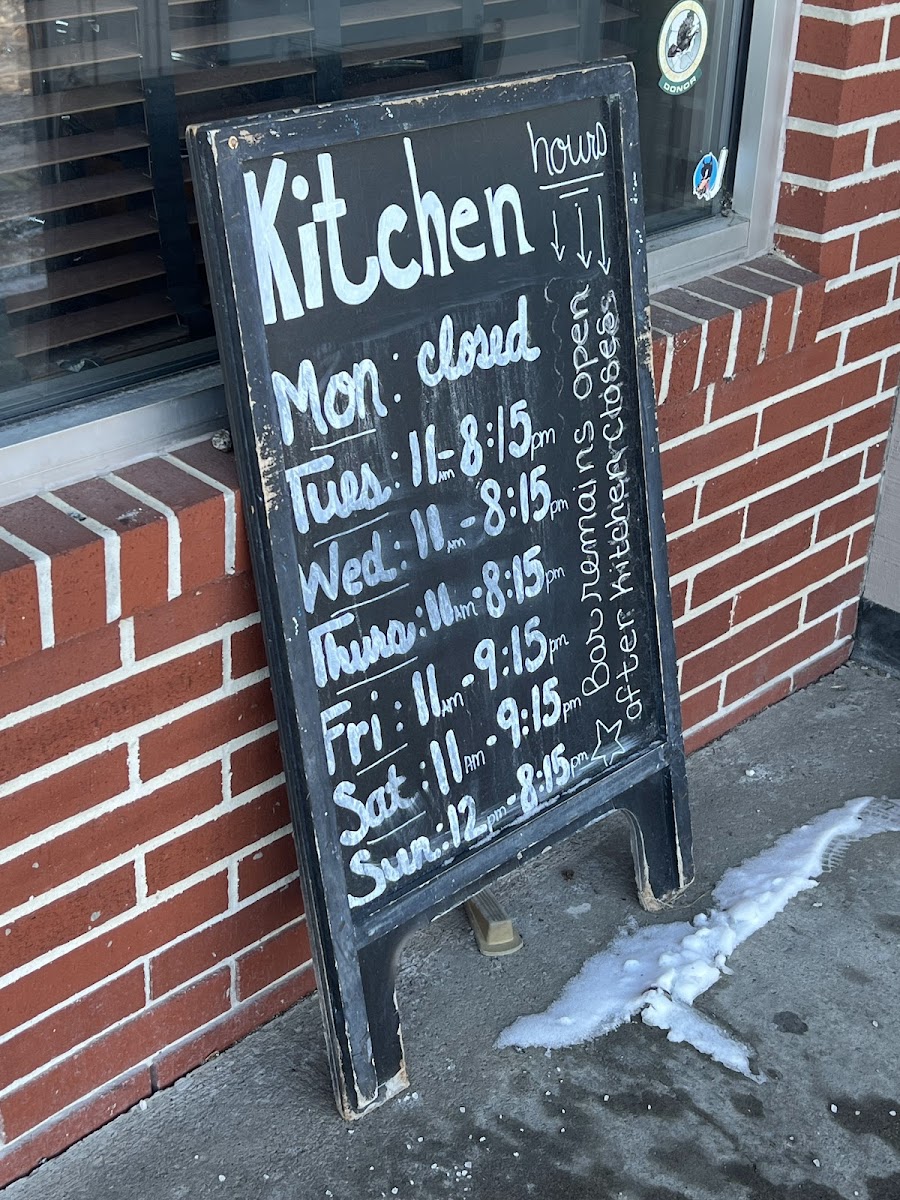 Kitchen hours
Mon: closed
Tues: 11AM-8:15pm
Wed: 11AM-8:15pm
Thurs: 11AM-8:15pm
Fri: 11AM-9:15pm
Sat: 11AM-9:15pm
Sun: 12pm-8:15pm
Bar remains open
after kitchen closes
DONOR